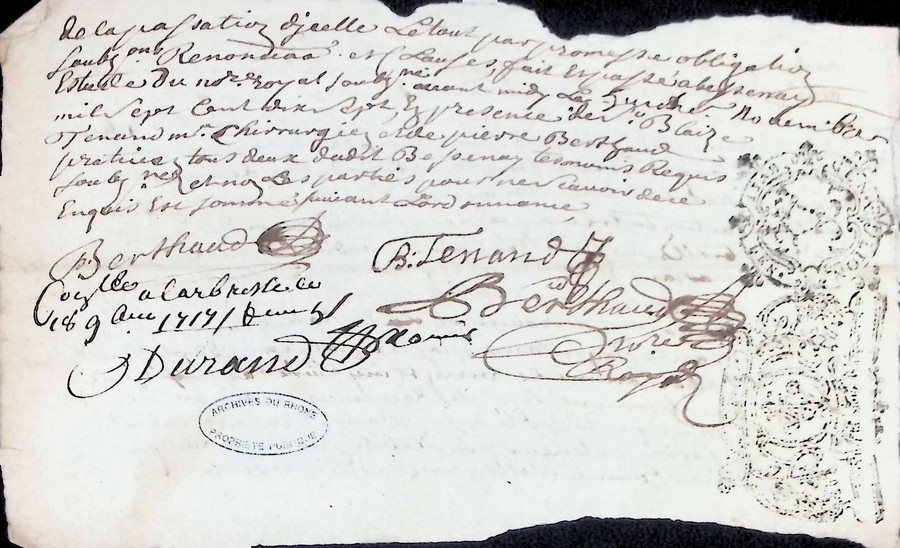 de la passation d'icelle Le tout par promesse obligation
soubz.ons Renontiaõn et Clauses fait Et passé a bessenay
Estude Du no.re Royal soubz.né avant midy Le
novembre
mil Sept Cent dix Sept, En presence de s.r Blaize
Tenand m.e Chirurgien et de pierre Berthaud
praticien tous deux dudit Bessenay temoins Requis
soubz.nez et non Les parties pour ne scavoir de ce
Enquis Et sommé suivant Lordonnance
Berthaud
B. Tenand
a Larbresle le
18 9.bre 1717
Berthaud
Durand
no.re
Royal
ARCHIVES DU RHONE
PROPRIÉTÉ PUBLIQUE